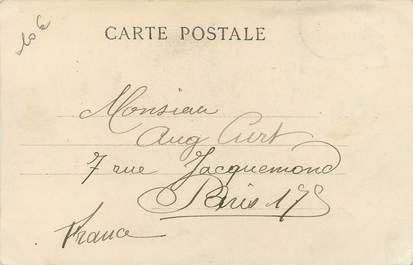 10 €
CARTE POSTALE
Monsieur
Aug Curt
7 rue Jacquemond
Paris 17e
France